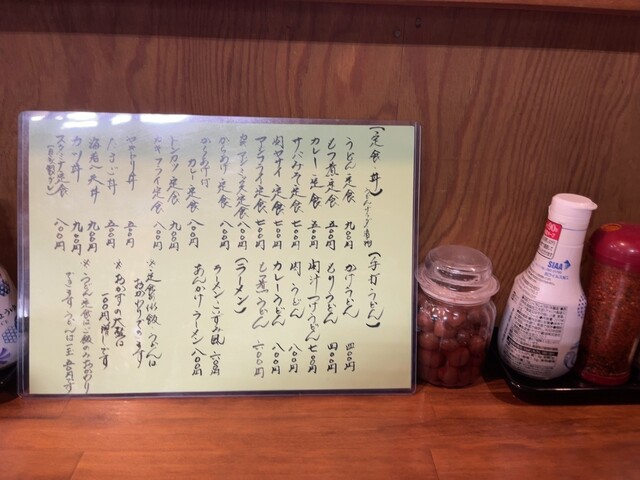 【定食、丼】
うどん定食 九〇〇円
もつ煮定食 五〇〇円
カレー定食 五〇〇円
サバみそ定食 七〇〇円
肉ヤサイ定食 七〇〇円
アジフライ定食 七〇〇円
定食 八〇〇円
からあげ定食 八〇〇円
からあげ付
カレー 八〇〇円
トンカツ定食 九〇〇円
カキフライ定食 八〇〇円
五〇〇円
たまご丼 五〇〇円
海老天丼 九〇〇円
カツ丼 九〇〇円
定食 八〇〇円
【手打うどん】
かけうどん 四〇〇円
もりうどん 四〇〇円
肉汁つけうどん 七〇〇円
肉うどん 八〇〇円
カレーうどん 八〇〇円
もつ煮うどん 六〇〇円
【ラーメン】
ラーメン 六〇〇円
あんかけラーメン 八〇〇円
※定食の飯、うどんは
おかわりできます
※おかずの大盛は
一〇〇円増しです
※うどん定食はご飯のみおかわり
できます
SIAA